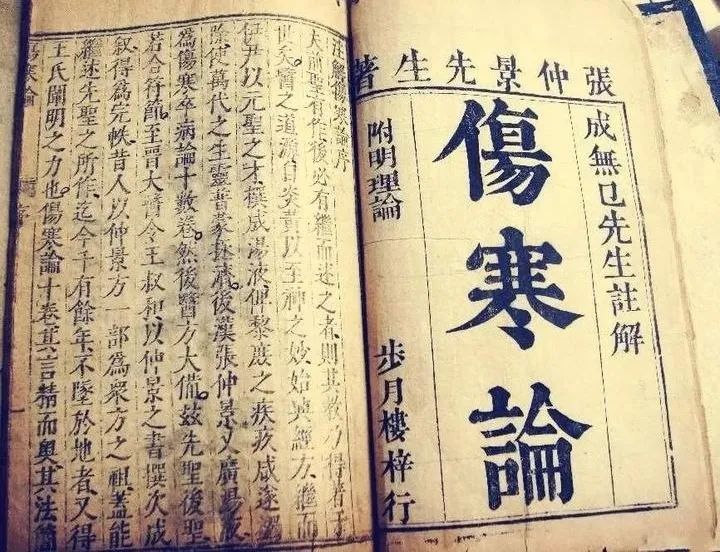 張仲景先生著
成無已先生註解
傷寒論
附明理論
步月樓梓行
注解傷寒論序
夫前聖有作後必有繼而述之者則其教乃得著于
世矣醫之道源自炎黃以至神之妙始興經方繼而
伊尹以元聖之才撰成湯液俾黎庶之疾疚咸遂蠲
除使萬代之生靈普蒙拯濟後漢張仲景又廣湯液
為傷寒卒病論十數卷然後醫方大備茲先聖後聖
若合符節至晉太醫令王叔和以仲景之書撰次成
叙得為完帙昔人以仲景方一部為衆方之祖蓋能
繼述先聖之所作迄今千有餘年不墜於地者又得
王氏闡明之力也傷寒論十卷其言精而奥其法簡
傷寒論